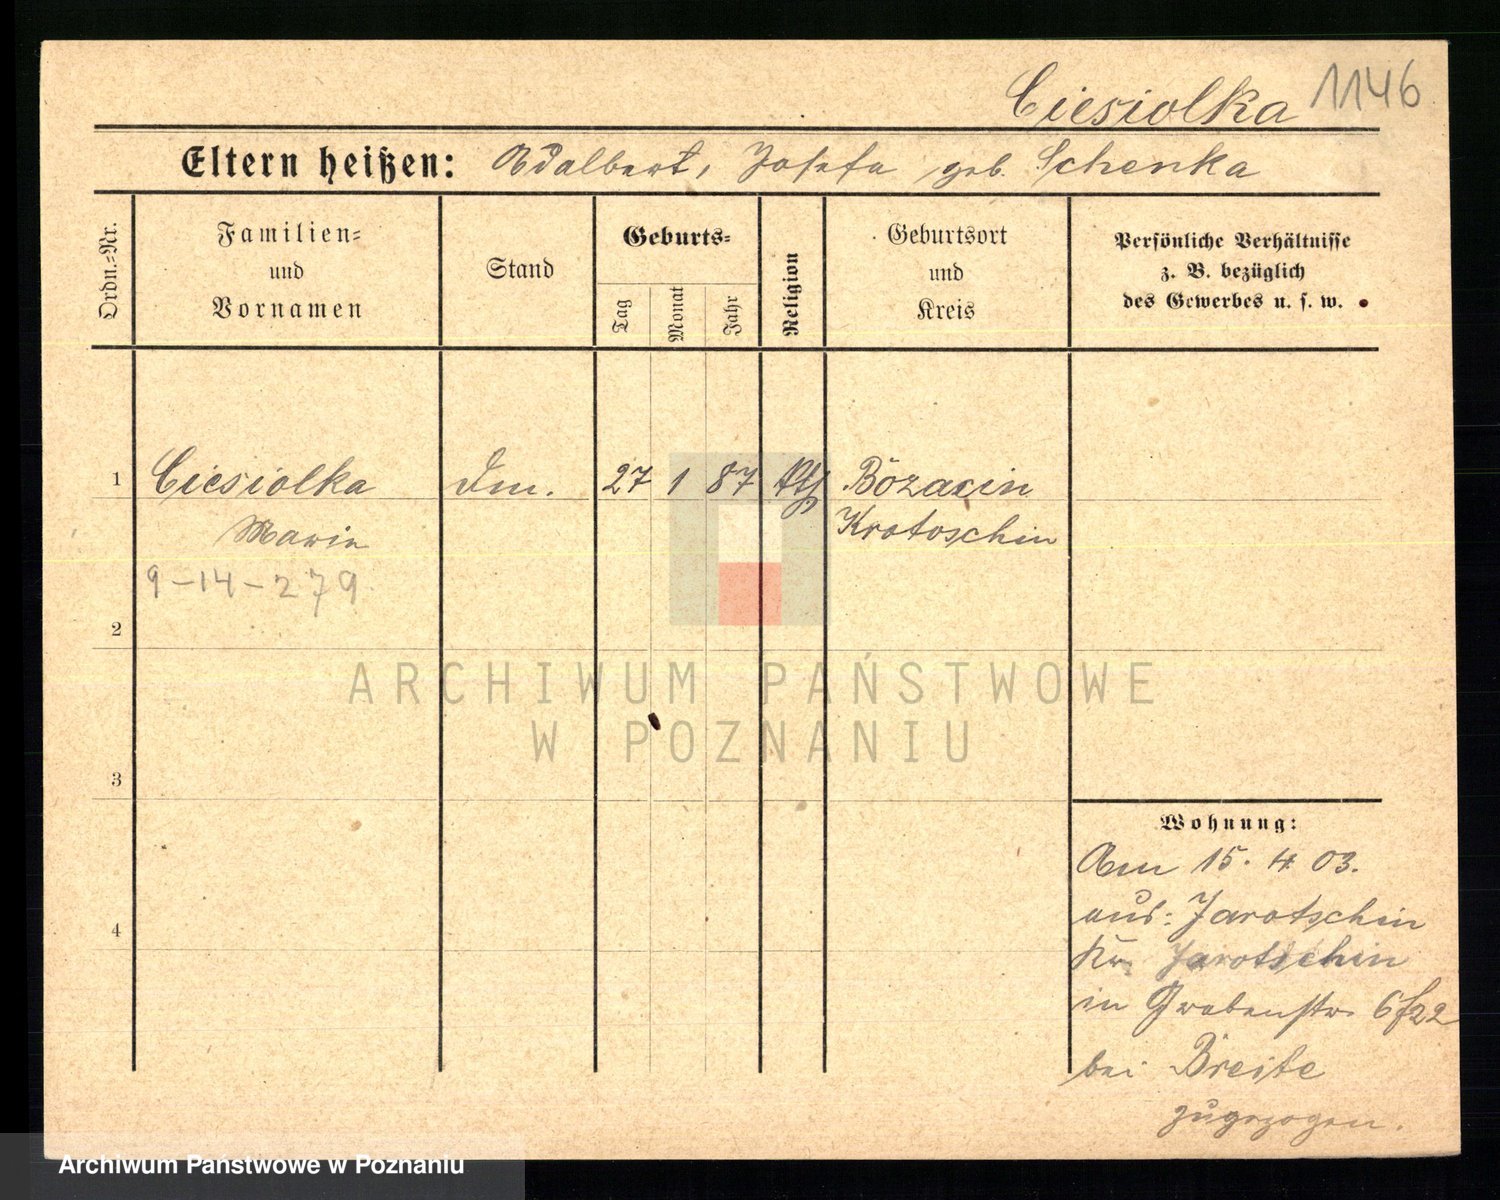 Ciesiolka 1146
Eltern heißen: Adalbert, Josefa geb. Schenka
Ordn.-Nr.
Familien-
und
Vornamen
Stand
Geburts-
Tag
Monat
Jahr
Religion
Geburtsort
und
Kreis
Persönliche Verhältnisse
z. B. bezüglich
des Gewerbes u. s. w.
1 Ciesiolka Dm. 27 1 87 kth Bozacin
Marie Krotoschin
9-14-279
2
3
4
Wohnung:
Am 15. 4. 03.
aus: Jarotschin
Kr. Jarotschin
in Grabenstr. 6
bei Breite
zugezogen.
ARCHIWUM PAŃSTWOWE
W POZNANIU
Archiwum Państwowe w Poznaniu